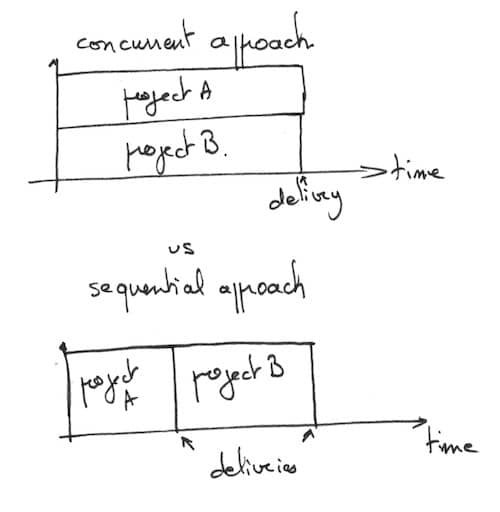 concurrent approach
project A
project B.
time
delivery
vs
sequential approach
project A
project B
time
deliveries